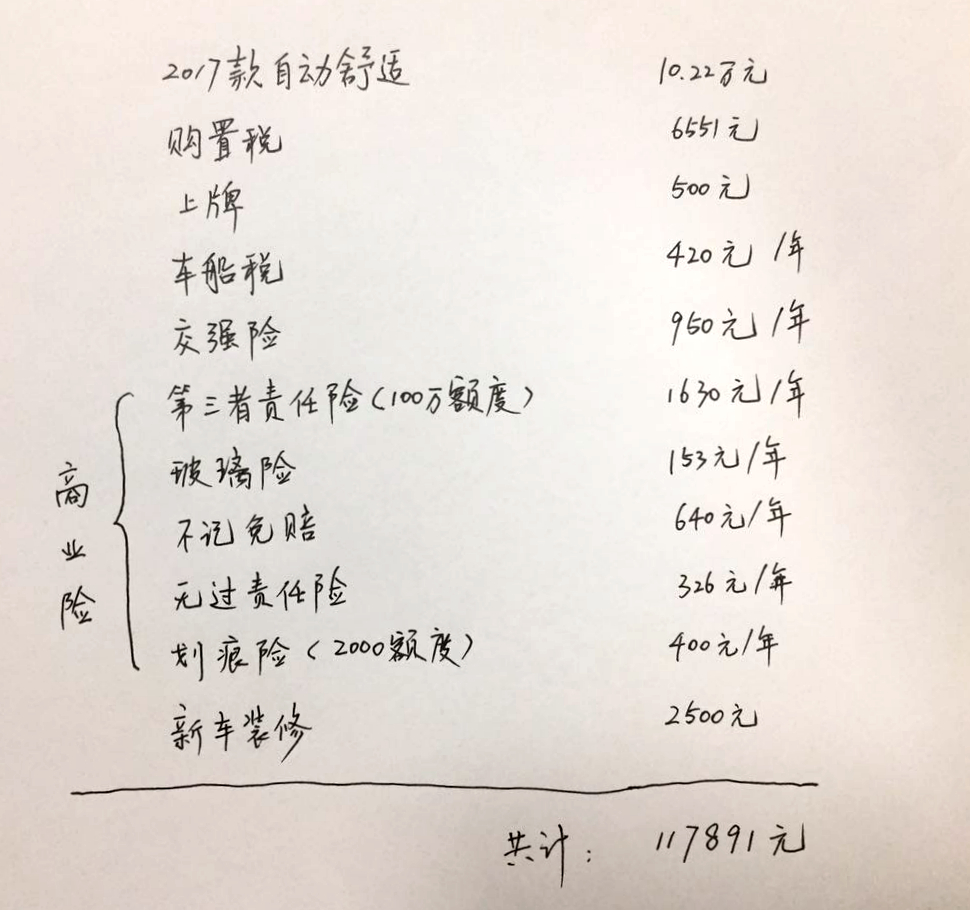 2017款自动舒适 10.22万元
购置税 6551元
上牌 500元
车船税 420元/年
交强险 950元/年
商业险
第三者责任险(100万额度) 1630元/年
玻璃险 153元/年
不记免赔 640元/年
无过责任险 326元/年
划痕险(2000额度) 400元/年
新车装修 2500元
共计: 117891元